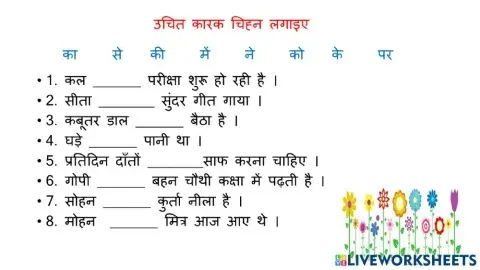 उचित कारक चिह्न लगाइए
का से की में ने को के पर
• 1. कल ______ परीक्षा शुरू हो रही है ।
• 2. सीता _______ सुंदर गीत गाया ।
• 3. कबूतर डाल ______ बैठा है ।
• 4. घड़े ______ पानी था ।
• 5. प्रतिदिन दाँतों _______साफ करना चाहिए ।
• 6. गोपी ______ बहन चौथी कक्षा में पढ़ती है ।
• 7. सोहन ______ कुर्ता नीला है ।
• 8. मोहन ______ मित्र आज आए थे ।
LIVEWORKSHEETS